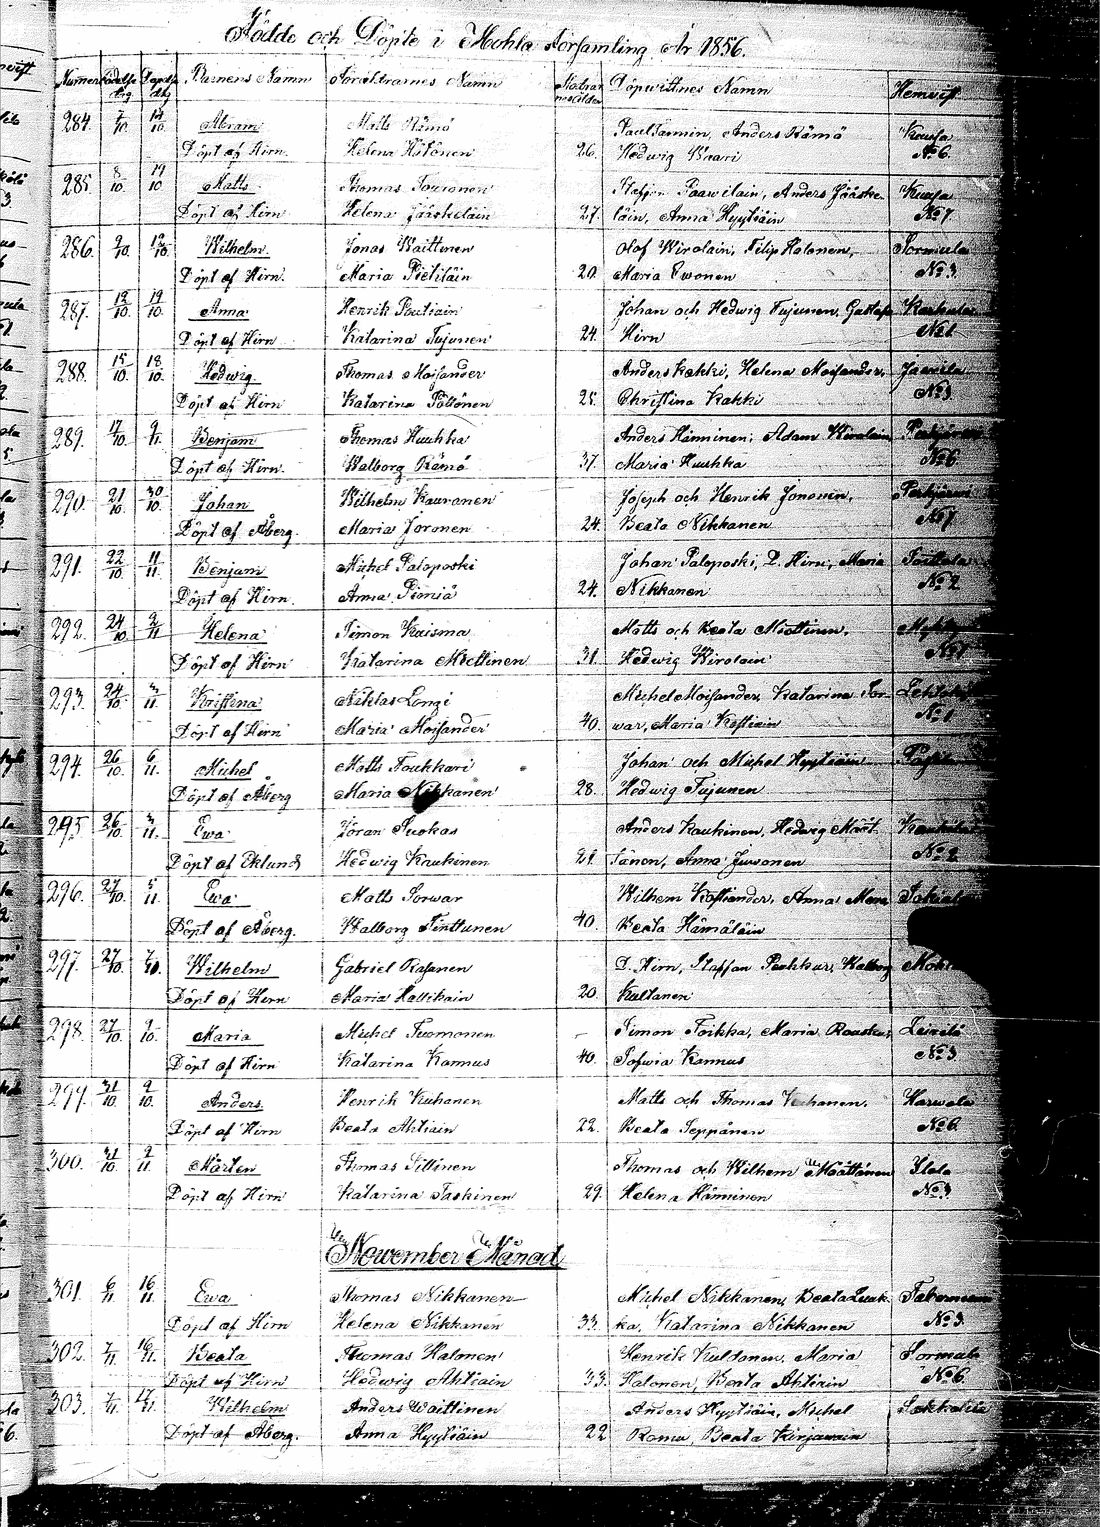 Födde och Döpte i Mohla Församling År 1856.
Numer Födelse dag Döpelse dag Barnens Namn Föräldrarnes Namn Modrens ålder Döpvittnes Namn Hemvist
284. 7/10 12/10 Abram Matts Rämö Paul Tammin, Anders Rämö Kuusa
Döpt af Hirn. Helena Hötönen 26. Hedwig Waari No 6.
285. 8/10 19/10 Matts Thomas Touronen Staffan Paawilain, Anders Jääske- Kuusa
Döpt af Hirn Helena Jääskeläin 27. läin, Anna Hyytiäin No 7.
286. 9/10 12/10 Wilhelm Jonas Waittinen Olof Wirolain, Filip Halonen, Sormula
Döpt af Hirn. Maria Pietiläin 20. Maria Ewonen No 3.
287. 12/10 19/10 Anna Henrik Poutiain Johan och Hedwig Tujunen, Gustafva
Döpt af Hirn Katarina Tujunen 24. Hirn No 1.
288. 15/10 18/10 Hedwig Thomas Moisander Anders Kakki, Helena Moisander, Jaarila
Döpt af Hirn Katarina Pöllönen 25. Christina Kakki No 3.
289. 17/10 9/11 Benjam Thomas Huuhka Anders Hänninen, Adam Wirolain
Döpt af Hirn. Walborg Rämö 37. Maria Huuhka No 6.
290. 21/10 30/10 Johan Wilhelm Kauranen Joseph och Henrik Jononen, Perkjärvi
Döpt af Åberg. Maria Joronen 24. Beata Nikkanen No 7.
291. 22/10 11/11 Benjam Michel Paloposki Johan Paloposki, D. Hirn, Maria
Döpt af Hirn. Anna Pimiä 24. Nikkanen No 2.
292. 24/10 2/11 Helena Simon Kuisma Matts och Beata Miettinen,
Döpt af Hirn Katarina Miettinen 31. Hedwig Wirolain No 1.
293. 24/10 3/11 Kristina Niklas Longi Michel Moisander, Katarina Sor-
Döpt af Hirn Maria Moisander 40. war, Maria Kostiain No 1.
294. 26/10 6/11 Michel Matts Toukkari Johan och Michel Hyytiäin
Döpt af Åberg Maria Nikkanen 28. Hedwig Tujunen
295. 26/10 3/11 Ewa Göran Suokas Anders Kaukinen, Hedwig Märt-
Döpt af Eklund Hedwig Kaukinen 21. tänen, Anna Juvonen No 2.
296. 27/10 5/11 Ewa Matts Sorwar Wilhem Kostiander, Anna
Döpt af Åberg. Walborg Tinttunen 40. Beata Hämäläin
297. 27/10 7/10. Wilhelm Gabriel Rasanen D. Hirn, Staffan Peuhkur, Walborg
Döpt af Hirn Maria Hallikain 20 Kultanen
298. 27/10 9/10. Maria Michel Tuomonen Simon Toikka, Maria Raaskus,
Döpt af Hirn Katarina Kannus 40. Sofwia Kannus No 3
299. 31/10. 9/10. Anders Henrik Kuhanen Matts och Thomas Kuhanen. Harwala
Döpt af Hirn Beata Ahtiain 22. Beata Seppänen No 6.
300. 31/10 2/11. Mårten Thomas Tillinen Thomas och Wilhem Määttänen Ylola
Döpt af Hirn Katarina Taskinen 29. Helena Hänninen No 3
November Månad
301. 6/11. 16/11. Ewa Thomas Nikkanen Michel Nikkanen, Beata Luuk-
Döpt af Hirn Helena Nikkanen 33. ka, Katarina Nikkanen No 3.
302. 7/11 16/11. Beata Thomas Halonen Henrik Kultanen, Maria Sormula
Döpt af Hirn Hedwig Ahtiain 33. Halonen, Beata Ahtiain No 6.
303. 7/11. 17/11. Wilhelm Anders Waittinen Anders Hyytiäin, Michel
Döpt af Åberg. Anna Hyytiäin 22 Romu, Beata Kirjawain